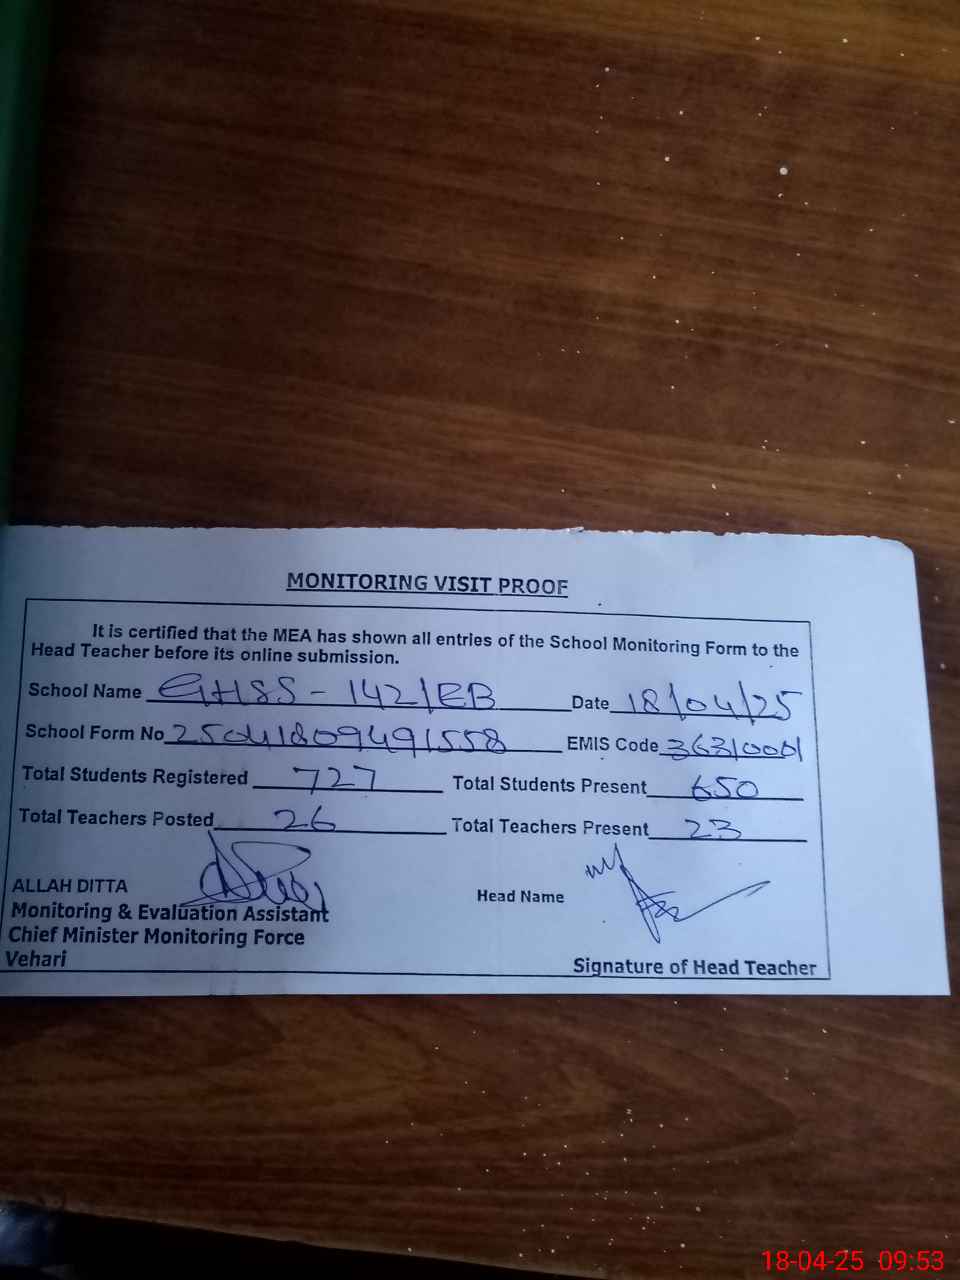 MONITORING VISIT PROOF
It is certified that the MEA has shown all entries of the School Monitoring Form to the
Head Teacher before its online submission.
School Name GHSS - 142/EB Date 18/04/25
School Form No 2504180949155​8 EMIS Code 36310001
Total Students Registered 727 Total Students Present 650
Total Teachers Posted 26 Total Teachers Present 23
ALLAH DITTA
Monitoring & Evaluation Assistant
Chief Minister Monitoring Force
Vehari
Head Name
Signature of Head Teacher
18-04-25 09:53